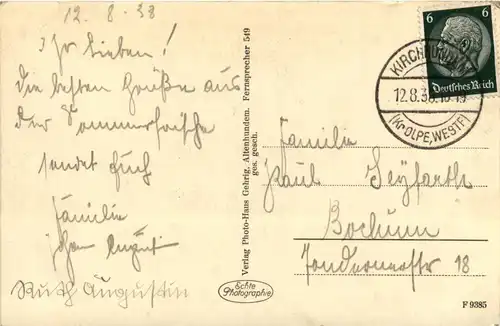 12. 8. 38
Ihr Lieben!
Die besten Grüße aus
der Sommerfrische
sendet Euch
Familie
August
Ruth Augustin
Verlag Photo-Hans Gehrig, Altenhunden. Fernsprecher 549
ges. gesch.
Echte
Photographie
6 6
Deutsches Reich
KIRCHHUNDEM
12.8.38.18-19
(Kr. OLPE, WESTF)
Familie
Paul Seyfarth
Bochum
18
F 9385